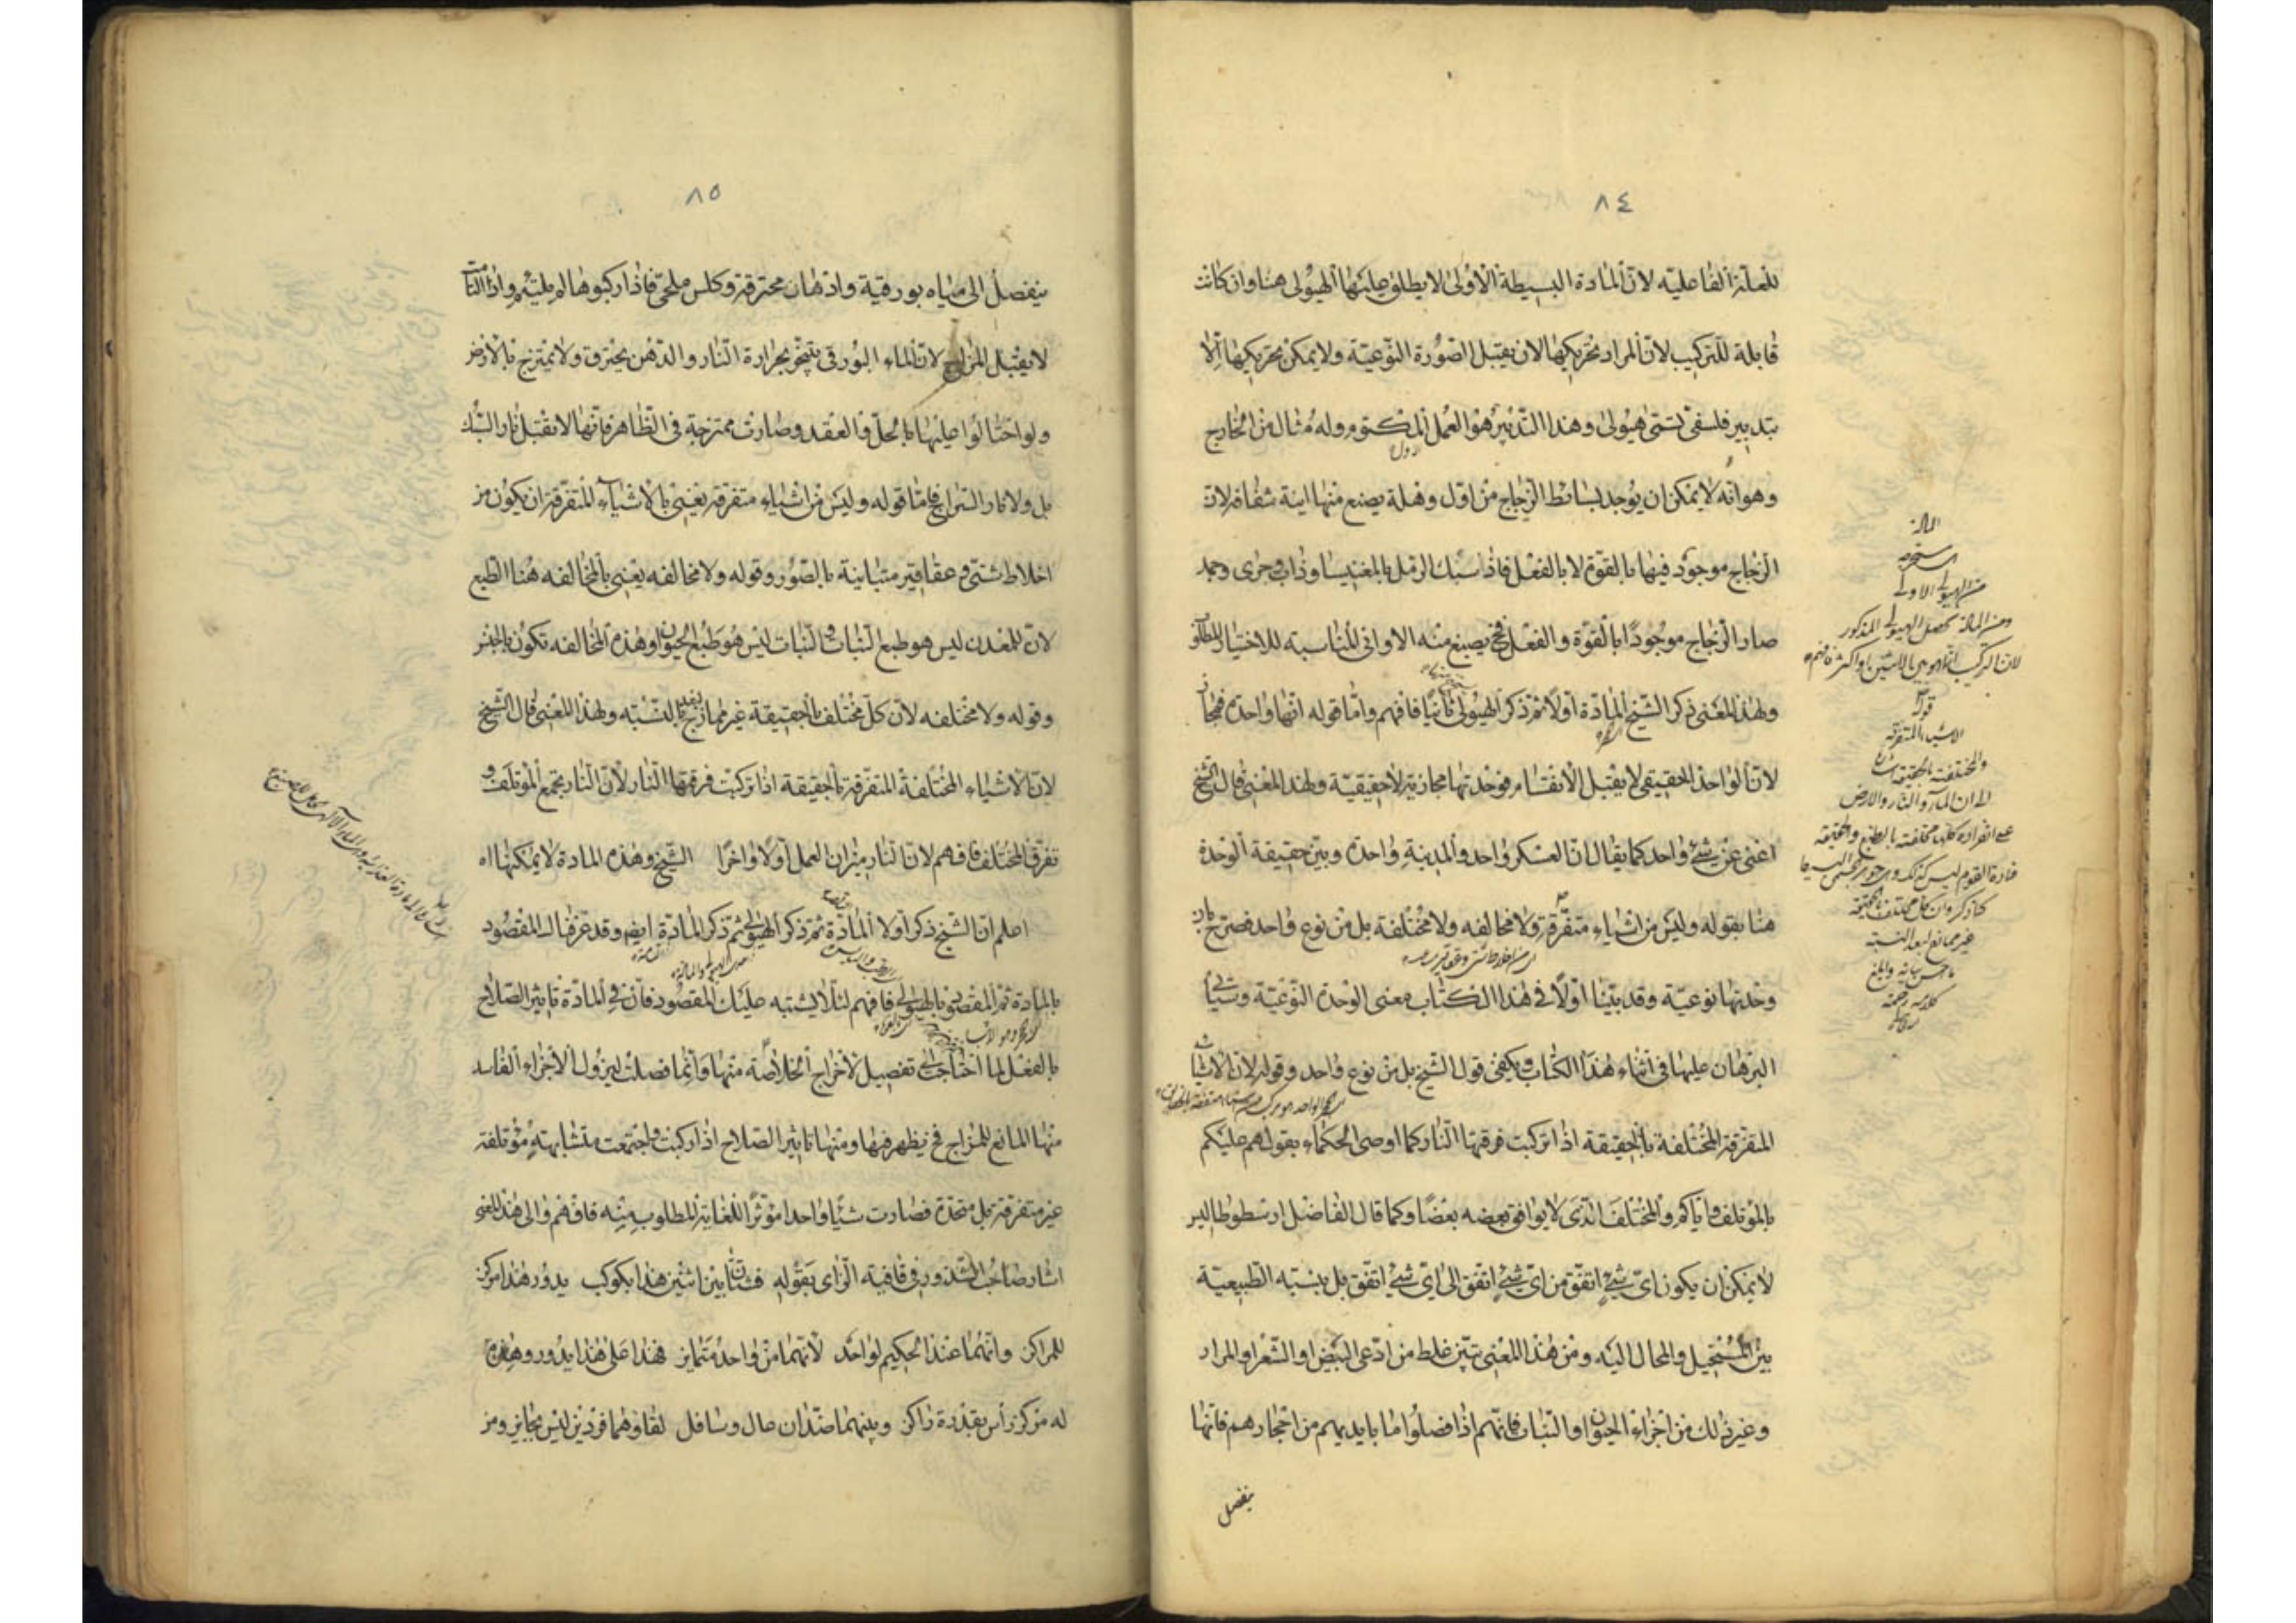 ٨٤
للعلة الفاعلية لان المادة البسيطة الاولى لا يطلق عليها الهيولى هنا وان كانت
قابلة للتركيب لان المراد تحريكها لان يقبل الصورة النوعية ولا يمكن تحريكها الا
بتدبير فلسفي تسمى هيولى وهذا التدبير هو العمل المكتوم وله مثال من الخارج
وهو انه لا يمكن ان يوجد بسائط الزجاج من اول وهلة يصنع منها انية شفافة لان
الزجاج موجود فيها بالقوة لا بالفعل فاذا سبك الرمل بالمغنيسا وذاب وجرى وجمد
صار الزجاج موجودًا بالقوة والفعل فح يصنع منه الاواني المناسبة للاختيار المطلق
ولهذا المعنى ذكر الشيخ المادة اولًا ثم ذكر الهيولى ثانيًا فافهم واما قوله انها واحدة فمجاز
لان الواحد الحقيقي لا يقبل الانقسام فوحدتها مجازية لا حقيقية ولهذا المعنى قال الشيخ
اعني عن شئ واحد كما يقال ان العسكر واحد والمدينة واحدة وبين حقيقة الوحدة
هنا بقوله وليس من اشياء متفرقة ولا مخالفه ولا مختلفة بل من نوع واحد فصرح بان
وحدتها نوعية وقد بينا اولًا في هذا الكتاب معنى الوحدة النوعية وسيأتي
البرهان عليها في اثناء هذا الكتاب ويكفي قول الشيخ بل من نوع واحد وقوله لان الاشياء
المتفرقة المختلفة بالحقيقة اذا تركبت فرقتها النار وكما اوصى الحكماء بقولهم عليكم
بالمؤتلف واياكم والمختلف الذى لا يوافق بعضه بعضًا وكما قال الفاضل ارسطوطاليس
لا يمكن ان يكون اى شئ اتفق من اى شئ اتفق الى اى شئ اتفق بل بنسبته الطبيعية
بين المستحيل والمحال اليه ومن هذا المعنى تبين غلط من ادعى البيض او الشعر او المرار
وغير ذلك من اجزاء الحيوان او النبات فانهم اذا فصلوا ما بايديهم من احجارهم فانها
ينفصل
المادة
مستخرجة
من الهيولى الاولى
ومن المادة تحصل الهيولى المذكور
قوله
الاشياء المتفرقة
والمختلفة بالحقيقة
الى ان الماء والنار والارض
على انفراده كلها مختلفة بالطبع والحقيقة
غير ممازج لبعد النسبة
٨٥
ينفصل الى مياه بورقية وادهان محترقة وكلس ملحي فاذا ركبوها لم يلتئم واذا التأمت
لا يقبل المزاج لان الماء البورقي يتبخر بحرارة النار والدهن يحترق ولا يمتزج بالارض
ولو احتالوا عليها بالحل والعقد وصارت ممتزجة في الظاهر فانها لا تقبل نار السبك
بل ولا نار السراج فاما قوله وليس من اشياء متفرقه يعنى بالاشياء المتفرقة ان يكون من
اخلاط شتى وعقاقير متباينة بالصور وقوله ولا مخالفه يعنى بالمخالفه هنا الطبع
لان للمعدن ليس هو طبع النبات والنبات ليس هو طبع الحيوان وهذه المخالفه تكون بالجنس
وقوله ولا مختلفه لان كل مختلف بالحقيقة غير ممازج لبعد النسبه ولهذا المعنى قال الشيخ
لان الاشياء المختلفة المتفرقة بالحقيقة اذا تركبت فرقتها النار لان النار تجمع المؤتلف و
تفرق المختلف فافهم لان النار ميزان العمل اولًا واخرًا الشيخ وهذه المادة لا يمكنها اه
اعلم ان الشيخ ذكر اولا المادة ثم ذكر الهيولى ثم ذكر المادة ايضا وقد عرفناك المقصود
بالمادة ثم المقصود بالهيولى فافهم لئلا يشتبه عليك المقصود فان في المادة تاثير الصلاح
بالفعل لما احتاجت الى تفصيل لاخراج الخلاصة منها وانما فصلت ليزول الاجزاء الفاسد
منها المانع للمزاج فح يظهر فيها ومنها تاثير الصلاح اذا ركبت واجتمعت متشابهة مؤتلفة
غير متفرقة بل متحدة فصارت شيًا واحدا مؤثرًا للغاية المطلوب منه فافهم والى هذا المعنى
اشار صاحب الشذور في قافية الزاى بقوله فشتان بين اثنين هذا بكوكب يدور هذا مركز
للمراكز وانهما عند الحكيم لواحد لانهما من واحد متمايز فهذا على هذا يدور وهذه
له مركز رأس بقدرة راكز وبينهما ضدان عال وسافل لقاؤهما فردين ليس بجايز ومن